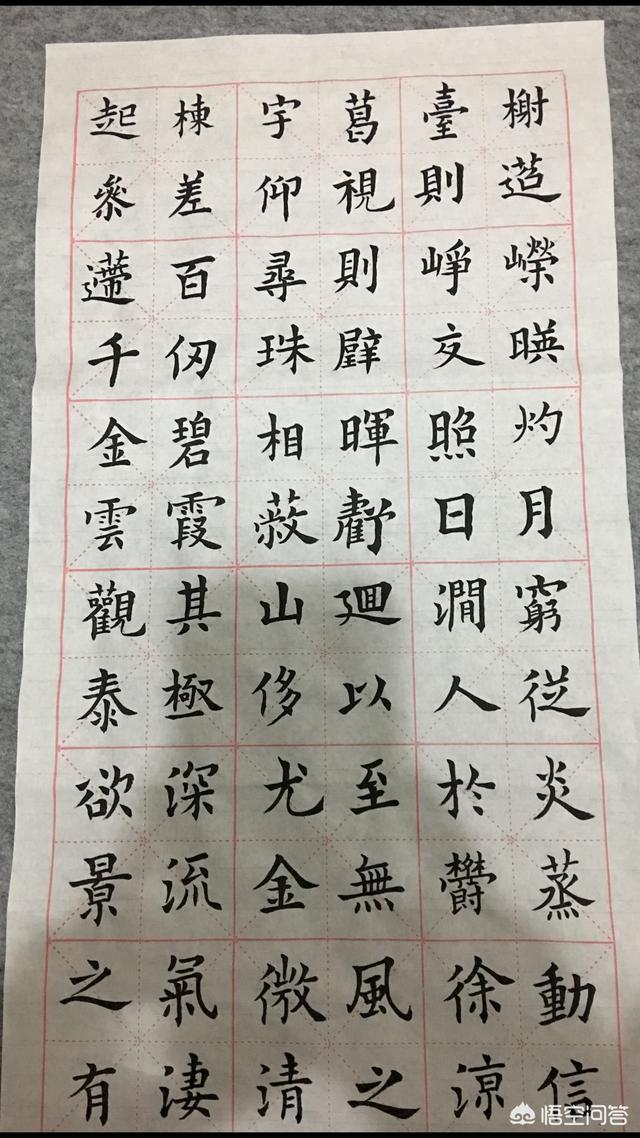 起棟宇葛臺榭
叅差仰視則迢
遰百尋則崢嶸
千仞珠壁交暎
金碧相暉照灼
雲霞蔽虧日月
觀其山廻澗窮
泰極侈以人從
欲深尤至於炎
景流金無欝蒸
之氣微風徐動
有淒清之涼信
悟空问答